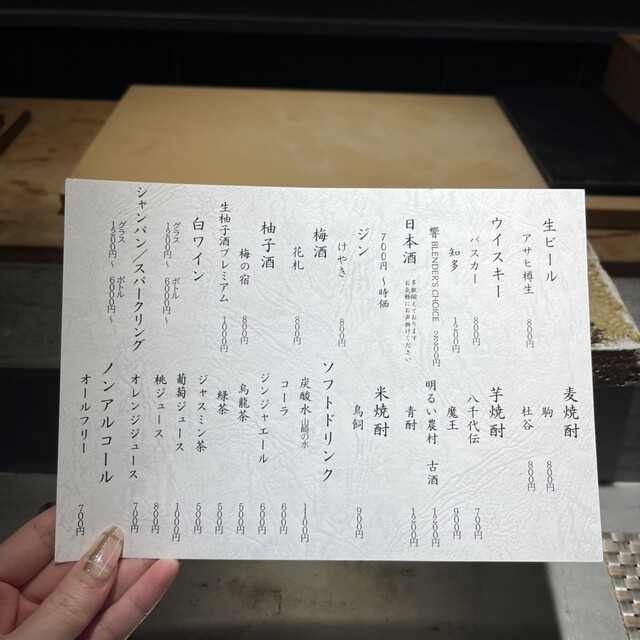 生ビール
アサヒ樽生 800円
ウイスキー
バスカー 800円
知多 1200円
響 BLENDER'S CHOICE 2200円
日本酒
多数揃えております
お気軽にお声掛けください
700円〜時価
ジン
けやき 800円
梅酒
花札 800円
柚子酒
梅の宿 800円
生柚子酒プレミアム 1000円
白ワイン
グラス ボトル
1200円〜 6000円〜
シャンパン／スパークリング
グラス ボトル
1200円〜 6000円〜
麦焼酎
駒 800円
杜谷 800円
芋焼酎
八千代伝 700円
魔王 900円
明るい農村 古酒 1200円
青酎 1200円
米焼酎
鳥飼 900円
ソフトドリンク
炭酸水 山崎の水 1100円
コーラ 600円
ジンジャエール 600円
烏龍茶 500円
緑茶 500円
ジャスミン茶 500円
葡萄ジュース 1000円
桃ジュース 800円
オレンジジュース 700円
ノンアルコール
オールフリー 700円